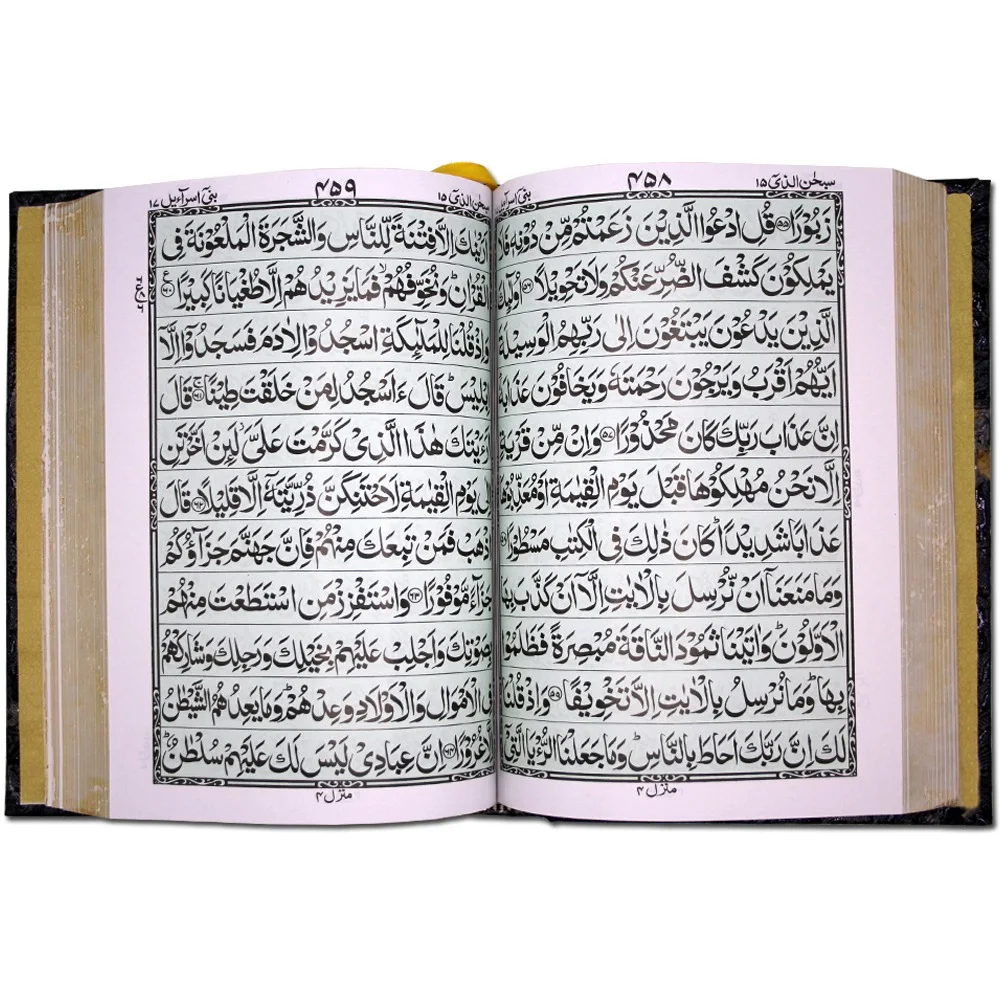 سبحٰن الذیٓ ١٥
۴۵۸
بنیٓ اسرآ
زَبُوْرًا ۵۵ قُلِ ادْعُوا الَّذِيْنَ زَعَمْتُمْ مِّنْ دُوْنِهٖ فَلَا
يَمْلِكُوْنَ كَشْفَ الضُّرِّ عَنْكُمْ وَلَا تَحْوِيْلًا ۵۶ اُولٰٓئِكَ
الَّذِيْنَ يَدْعُوْنَ يَبْتَغُوْنَ اِلٰى رَبِّهِمُ الْوَسِيْلَةَ
اَيُّهُمْ اَقْرَبُ وَيَرْجُوْنَ رَحْمَتَهٗ وَيَخَافُوْنَ عَذَابَهٗ
اِنَّ عَذَابَ رَبِّكَ كَانَ مَحْذُوْرًا ۵۷ وَاِنْ مِّنْ قَرْيَةٍ
اِلَّا نَحْنُ مُهْلِكُوْهَا قَبْلَ يَوْمِ الْقِيٰمَةِ اَوْ مُعَذِّبُوْهَا
عَذَابًا شَدِيْدًا ؕ كَانَ ذٰلِكَ فِى الْكِتٰبِ مَسْطُوْرًا
وَمَا مَنَعَنَآ اَنْ نُّرْسِلَ بِالْاٰيٰتِ اِلَّآ اَنْ كَذَّبَ بِهَا
الْاَوَّلُوْنَ ؕ وَاٰتَيْنَا ثَمُوْدَ النَّاقَةَ مُبْصِرَةً فَظَلَمُوْا
بِهَا ؕ وَمَا نُرْسِلُ بِالْاٰيٰتِ اِلَّا تَخْوِيْفًا ۵۹ وَاِذْ قُلْنَا
لَكَ اِنَّ رَبَّكَ اَحَاطَ بِالنَّاسِ ؕ وَمَا جَعَلْنَا الرُّءْيَا الَّتِيْٓ
منزل ۴
سبحٰن الذیٓ ١٥
۴۵۹
بنیٓ اسرآءیل ١٧
اَرَيْنٰكَ اِلَّا فِتْنَةً لِّلنَّاسِ وَالشَّجَرَةَ الْمَلْعُوْنَةَ فِى
الْقُرْاٰنِ ؕ وَنُخَوِّفُهُمْ ۙ فَمَا يَزِيْدُهُمْ اِلَّا طُغْيَانًا كَبِيْرًا ۶۰ ع
وَاِذْ قُلْنَا لِلْمَلٰٓئِكَةِ اسْجُدُوْا لِاٰدَمَ فَسَجَدُوْٓا اِلَّآ
اِبْلِيْسَ ؕ قَالَ ءَاَسْجُدُ لِمَنْ خَلَقْتَ طِيْنًا ۶۱ ج قَالَ
اَرَءَيْتَكَ هٰذَا الَّذِىْ كَرَّمْتَ عَلَىَّ ؗ لَئِنْ اَخَّرْتَنِ
اِلٰى يَوْمِ الْقِيٰمَةِ لَاَحْتَنِكَنَّ ذُرِّيَّتَهٗٓ اِلَّا قَلِيْلًا ۶۲ قَالَ
اذْهَبْ فَمَنْ تَبِعَكَ مِنْهُمْ فَاِنَّ جَهَنَّمَ جَزَآؤُكُمْ
جَزَآءً مَّوْفُوْرًا ۶۳ وَاسْتَفْزِزْ مَنِ اسْتَطَعْتَ مِنْهُمْ
بِصَوْتِكَ وَاَجْلِبْ عَلَيْهِمْ بِخَيْلِكَ وَرَجِلِكَ وَشَارِكْهُمْ
فِى الْاَمْوَالِ وَالْاَوْلَادِ وَعِدْهُمْ ؕ وَمَا يَعِدُهُمُ الشَّيْطٰنُ
اِلَّا غُرُوْرًا ۶۴ اِنَّ عِبَادِىْ لَيْسَ لَكَ عَلَيْهِمْ سُلْطٰنٌ ؕ
منزل ۴